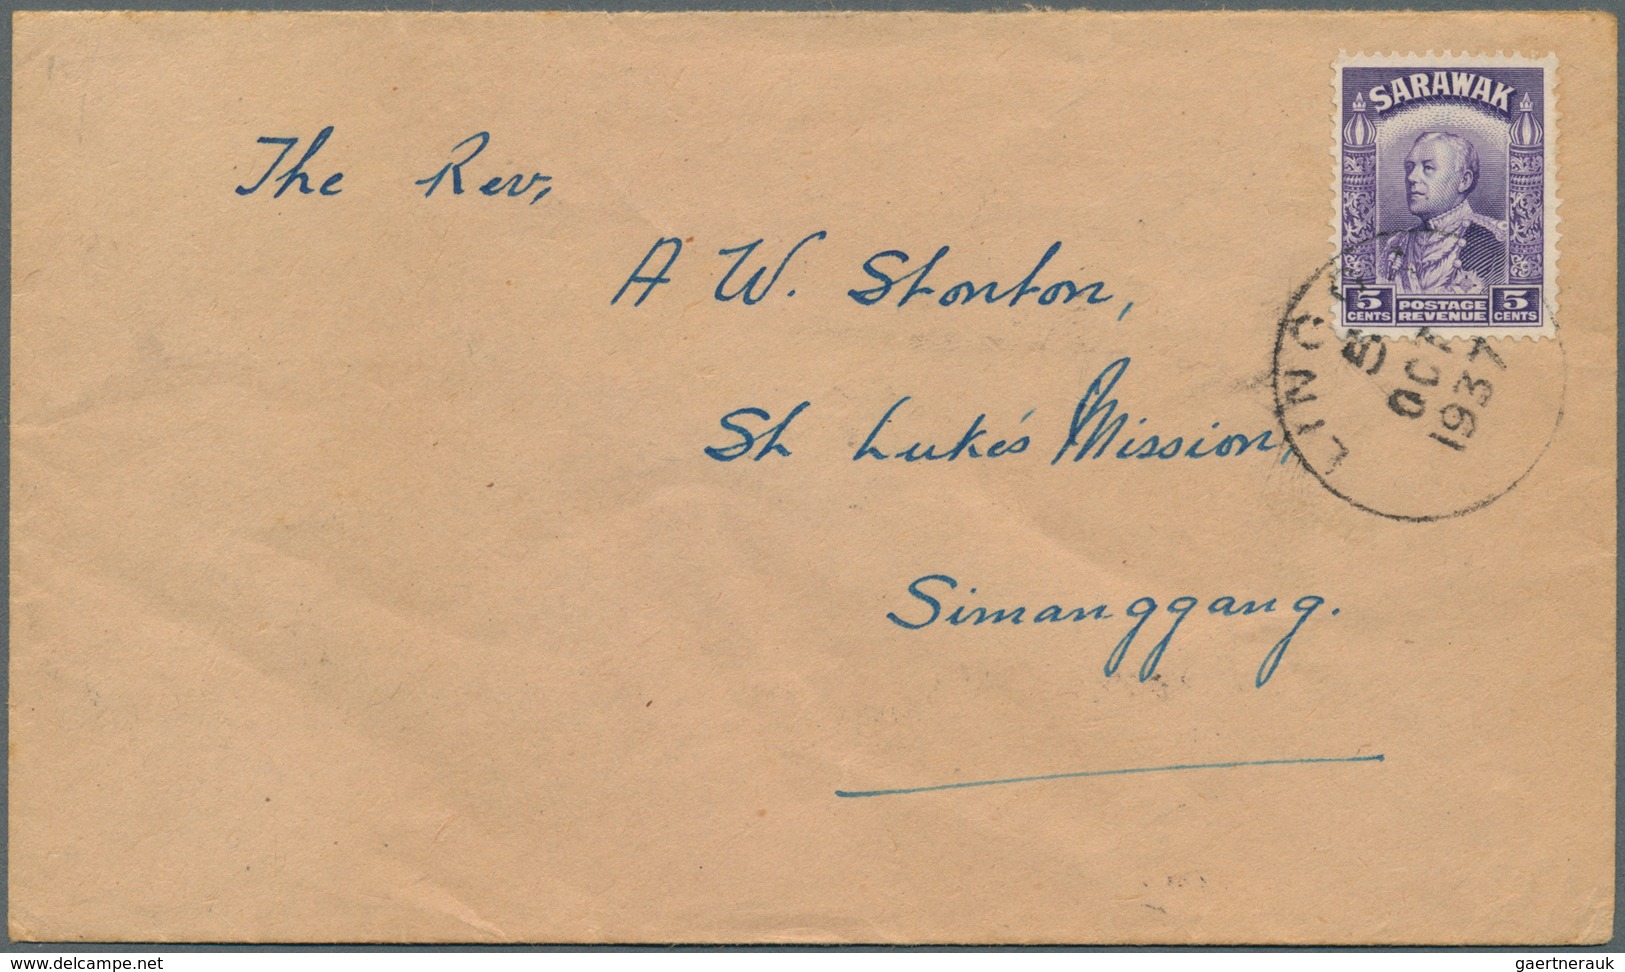 SARAWAK
5 CENTS POSTAGE REVENUE 5 CENTS
LINGGA
5
OCT
1937
The Rev,
A W. Stonton,
St Luke's Mission,
Simanggang.
www.delcampe.net
gaertnerauk